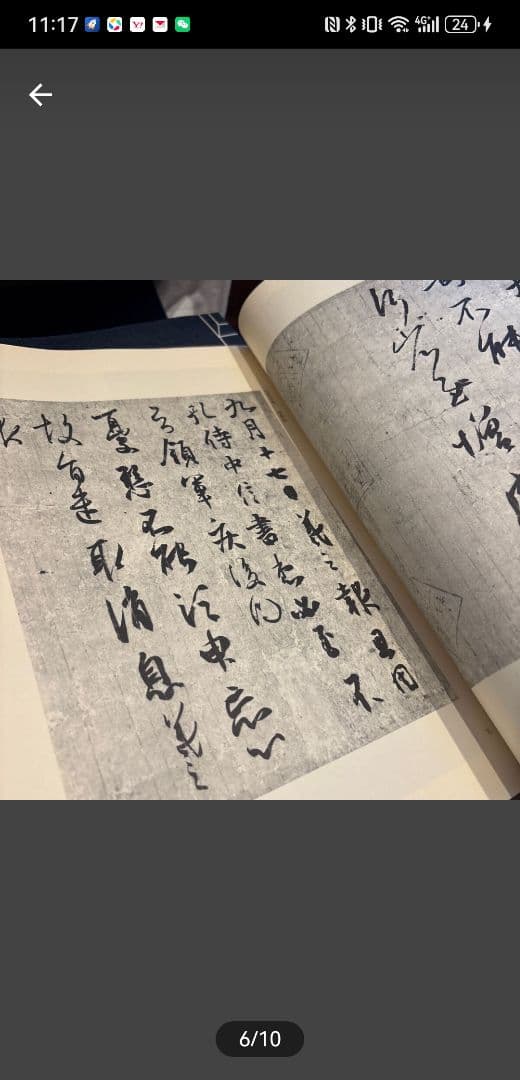 11:17
4G
24
不能
省慰增
九月十七日羲之報且因
孔侍中信書想必至不
知領軍疾後問
憂懸不能須臾忘心
故旨遣取消息羲之
6/10